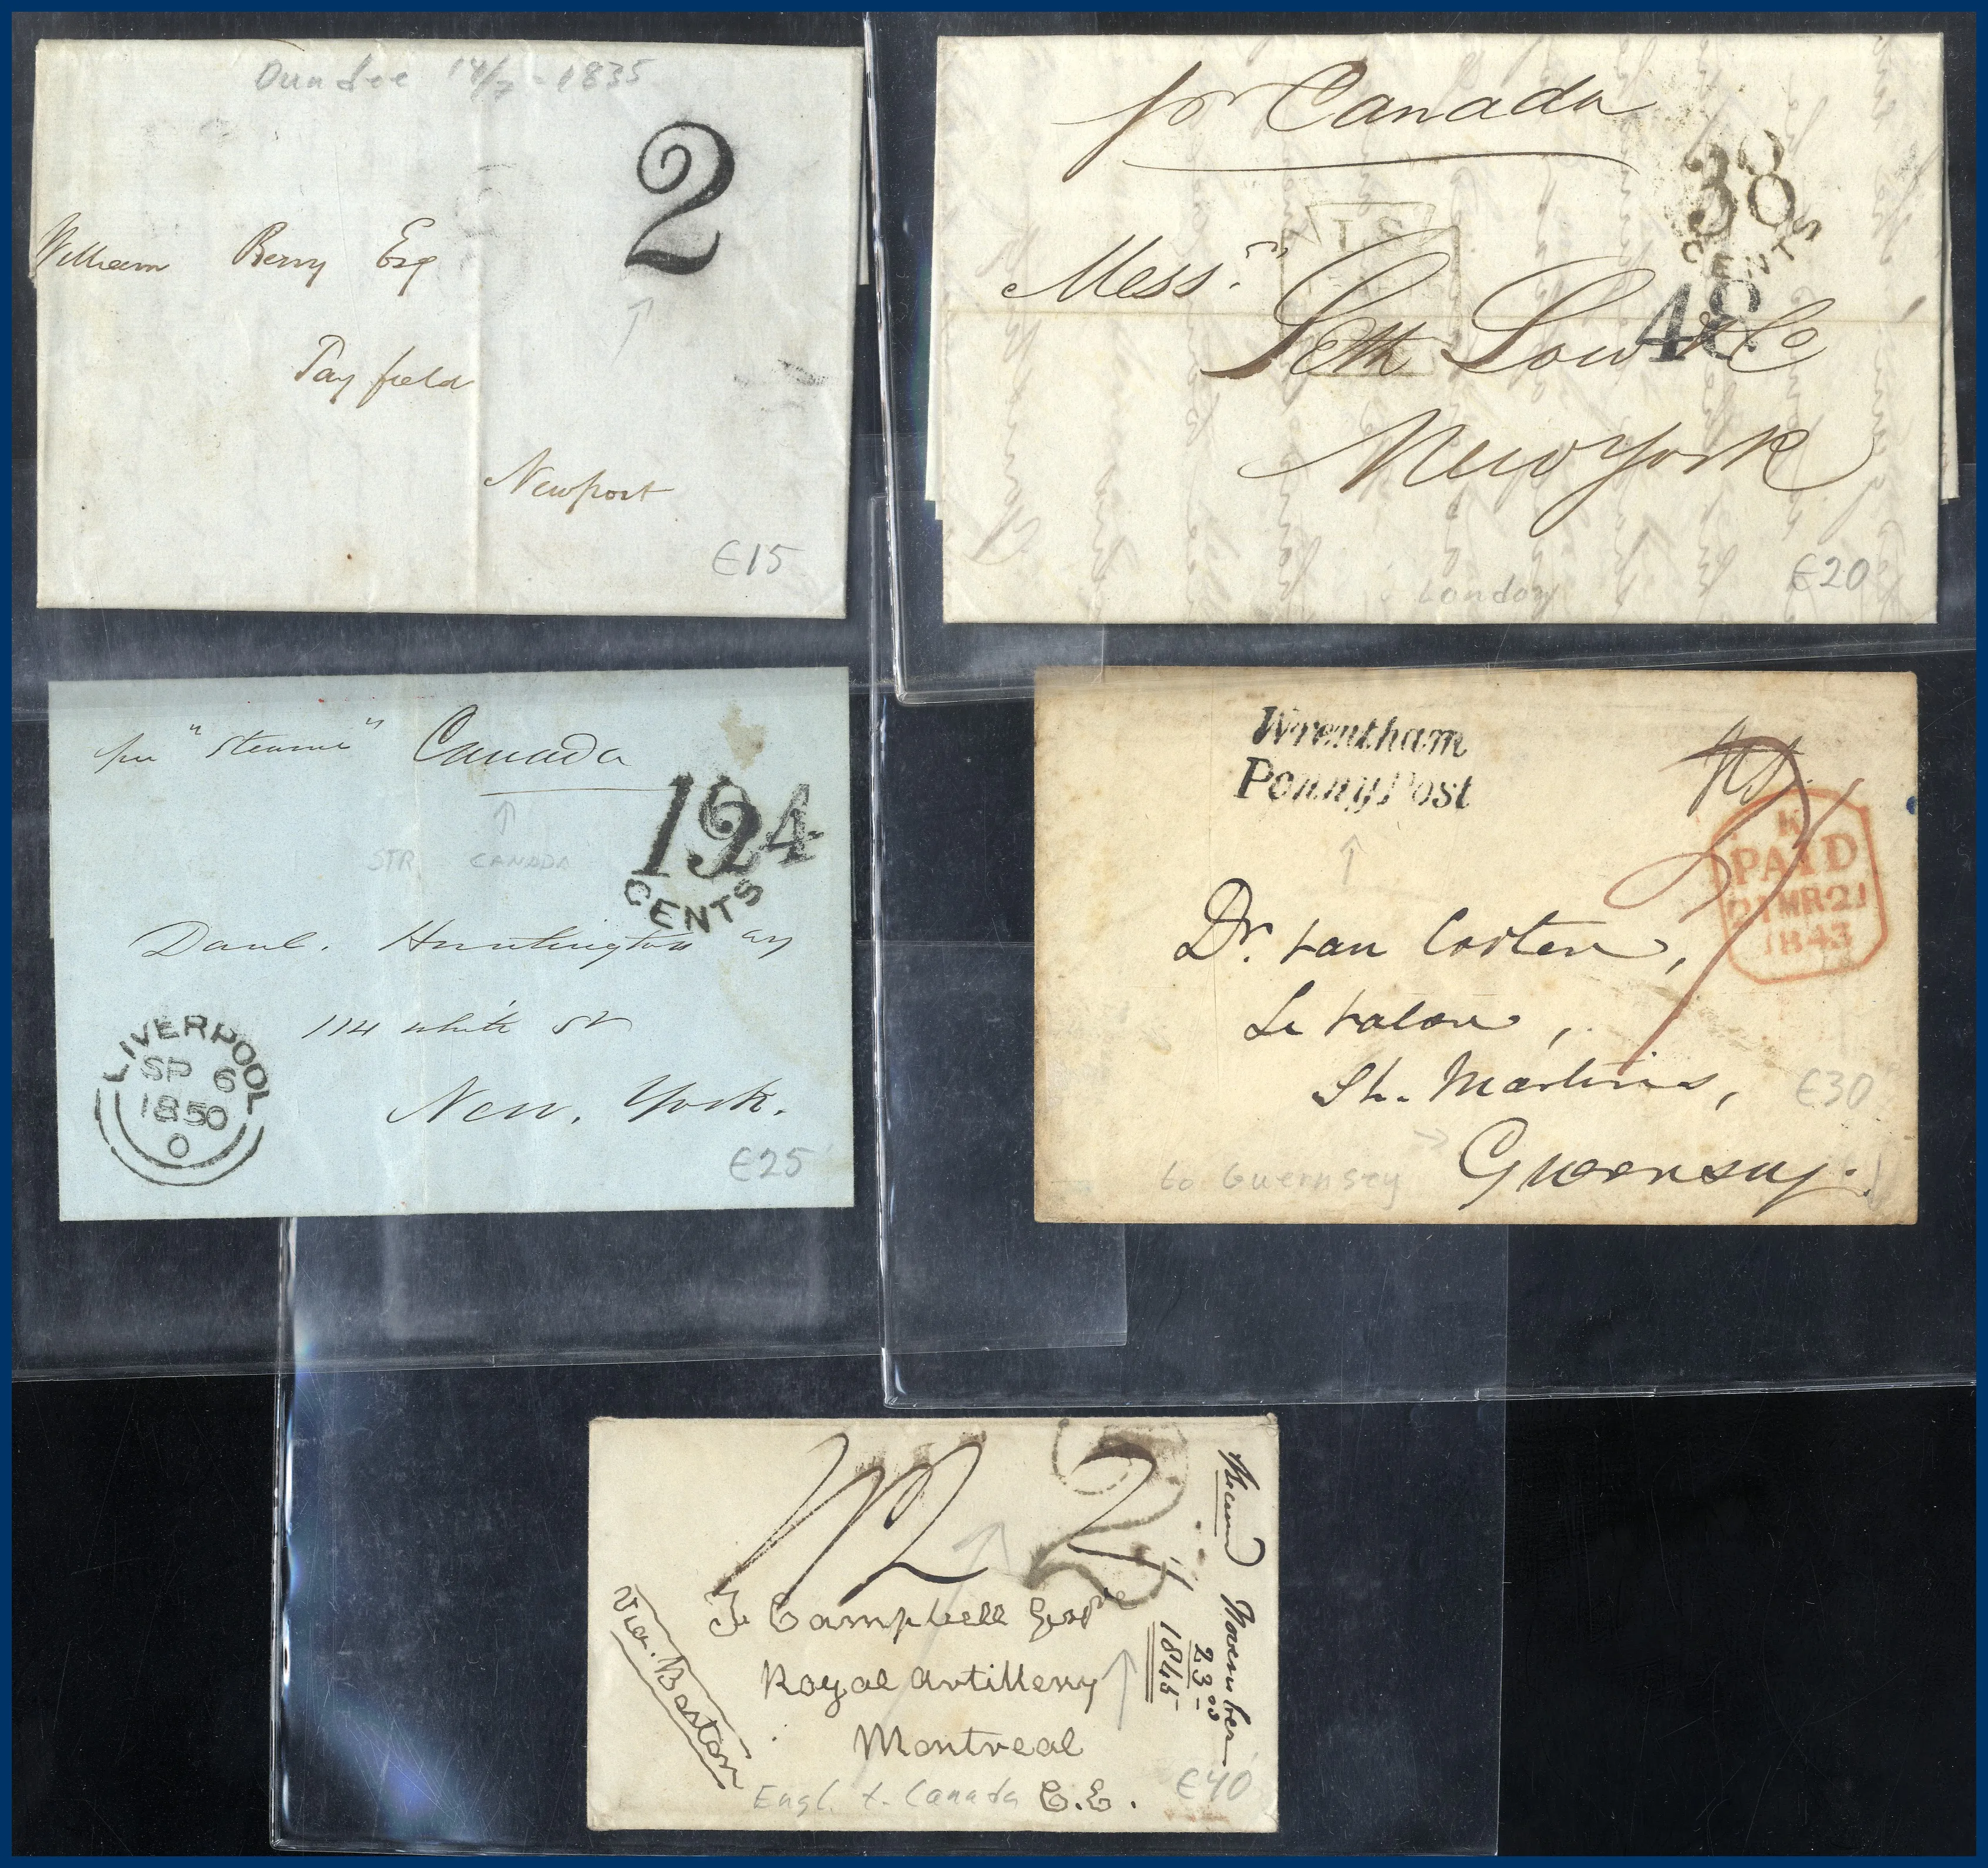 Dundee 14/7 - 1835
2
William Berry Esq
Tayfield
Newport
€15
pr Canada
38
CENTS
48
Messrs. Seth Low & Co
New York
London
€20
per "Steamer" Canada
STR CANADA
124
CENTS
Danl. Huntington Esq
114 White St
New York.
LIVERPOOL
SP 6
1850
O
€25
Wrentham
Penny Post
K
PAID
21 MR 21
1843
Dr. van
St. Martins,
Guernsey.
to Guernsey
€30
2
Campbell Esqre
Royal Artillery
Montreal
C.E.
Via. Boston
November
23rd
1845
Engl. t. Canada
€40